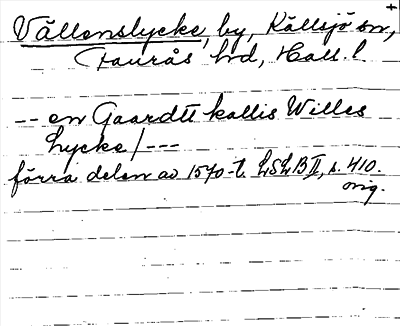 +
Vällenslycke, by, Källsjö sn,
Faurås hd, Hall. l.
-- en Gaardtt kallis Willes
Lycke / ---
förra delen av 1570-t. LSLB II, s. 410.
orig.